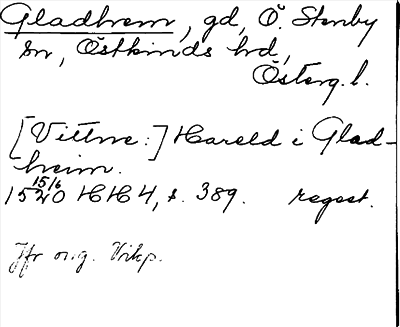 Gladhem, gd, Ö. Stenby
sn, Östkinds hd,
Österg. l.
[Vittne:] Harald i Glad-
heim.
15 15/6 20 HH 4, s. 389. regest.
Jfr orig. Vrkp.